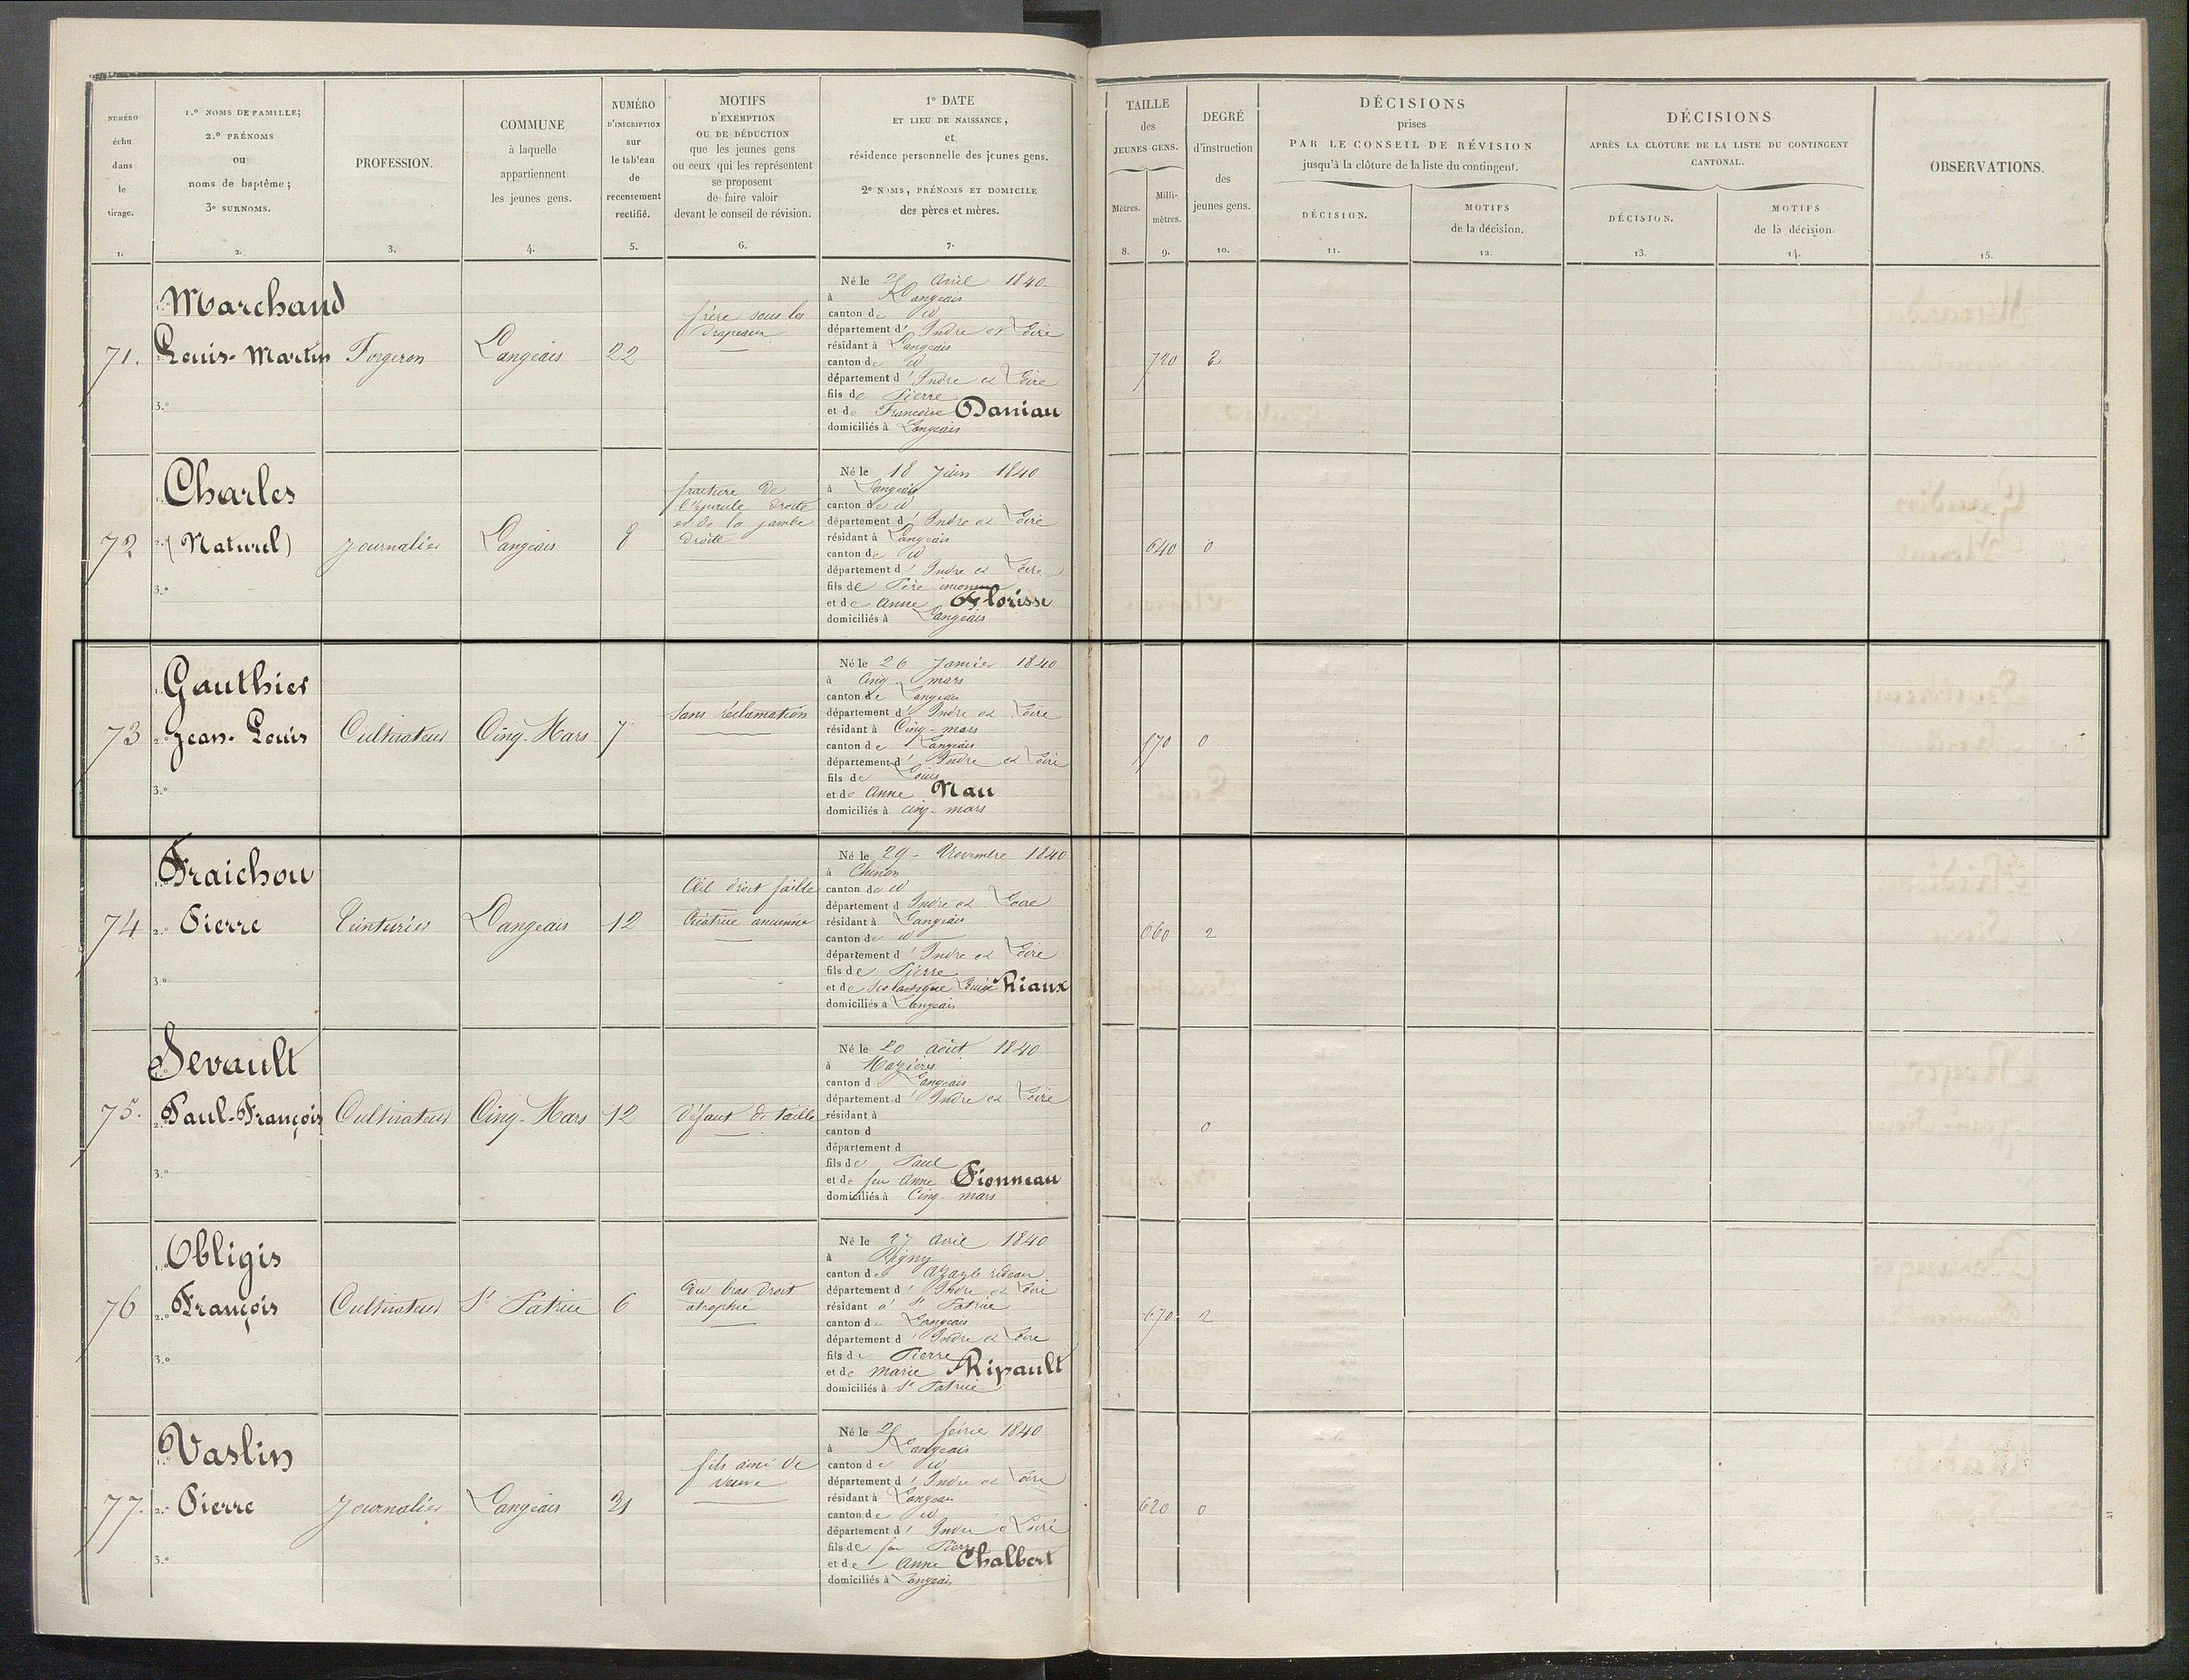 NUMÉRO
échu
dans
le
tirage.
1.
1.º NOMS DE FAMILLE;
2.º PRÉNOMS
ou
noms de baptême;
3º SURNOMS.
2.
PROFESSION.
3.
COMMUNE
à laquelle
appartiennent
les jeunes gens.
4.
NUMÉRO
D'INSCRIPTION
sur
le tableau
de
recensement
rectifié.
5.
MOTIFS
D'EXEMPTION
OU DE DÉDUCTION
que les jeunes gens
ou ceux qui les représentent
se proposent
de faire valoir
devant le conseil de révision.
6.
1º DATE
ET LIEU DE NAISSANCE,
et
résidence personnelle des jeunes gens.
2º NOMS, PRÉNOMS ET DOMICILE
des pères et mères.
7.
TAILLE
des
JEUNES GENS.
Mètres.
8.
Milli-
mètres.
9.
DEGRÉ
d'instruction
des
jeunes gens.
10.
DÉCISIONS
prises
PAR LE CONSEIL DE RÉVISION
jusqu'à la clôture de la liste du contingent.
DÉCISION.
11.
MOTIFS
de la décision.
12.
DÉCISIONS
APRÈS LA CLOTURE DE LA LISTE DU CONTINGENT
CANTONAL.
DÉCISION.
13.
MOTIFS
de la décision.
14.
OBSERVATIONS.
15.
71.
Marchand
Louis-Martin
3.º
Forgeron
Langeais
22
frère sous les
drapeaux
Né le avril 1840
à Langeais
canton de id
département d' Indre et Loire
résidant à Langeais
canton de id
département d' Indre et Loire
fils de Pierre
et de Françoise Daniau
domiciliés à Langeais
720
72
Charles
2.º (Naturel)
3.º
Journalier
Langeais
8
fracture de
l'épaule droite
et de la jambe
droite
Né le 18 Juin 1840
à Langeais
canton de id
département d' Indre et Loire
résidant à Langeais
canton de id
département d' Indre et Loire
fils de Père inconnu
et de Anne Florisse
domiciliés à Langeais
640
0
73
Gauthier
2.º Jean-Louis
3.º
Cultivateur
Cinq-Mars
7
Sans réclamation
Né le 26 Janvier 1840
à Cinq-mars
canton de Langeais
département d' Indre et Loire
résidant à Cinq-mars
canton de Langeais
département d' Indre et Loire
fils de Louis
et de Anne Nau
domiciliés à Cinq-mars
0
74
Fraichou
2.º Pierre
3.º
Teinturier
Langeais
12
Œil droit faible
Cicatrice ancienne
Né le 29 Novembre 1840
à Chinon
canton de id
département d Indre et Loire
résidant à Langeais
canton de id
département d' Indre et Loire
fils de Pierre
et de Scolastique Louise Riaux
domiciliés à Langeais
660
2
75.
Sevault
2.º Paul-François
3.º
Cultivateur
Cinq-Mars
12
Défaut de taille
Né le 20 août 1840
à Mazières
canton d Langeais
département d' Indre et Loire
résidant à
canton d
département d
fils de Paul
et de feu Anne Pionneau
domiciliés à Cinq-mars
0
76
Obligis
2.º François
3.º
Cultivateur
St Patrice
6
bras droit
atrophié
Né le 27 avril 1840
à Rigny
canton de Azay le rideau
département d' Indre et Loire
résidant à St Patrice
canton de Langeais
département d' Indre et Loire
fils de Pierre
et de marie Ripault
domiciliés à St Patrice
670
2
77.
Vaslin
2.º Pierre
3.º
Journalier
Langeais
31
fils ainé de
veuve
Né le 1840
à Langeais
canton de id
département d' Indre et Loire
résidant à Langeais
canton de id
département d' Indre et Loire
fils de feu Pierre
et de Anne Chalbert
domiciliés à Langeais
620
0